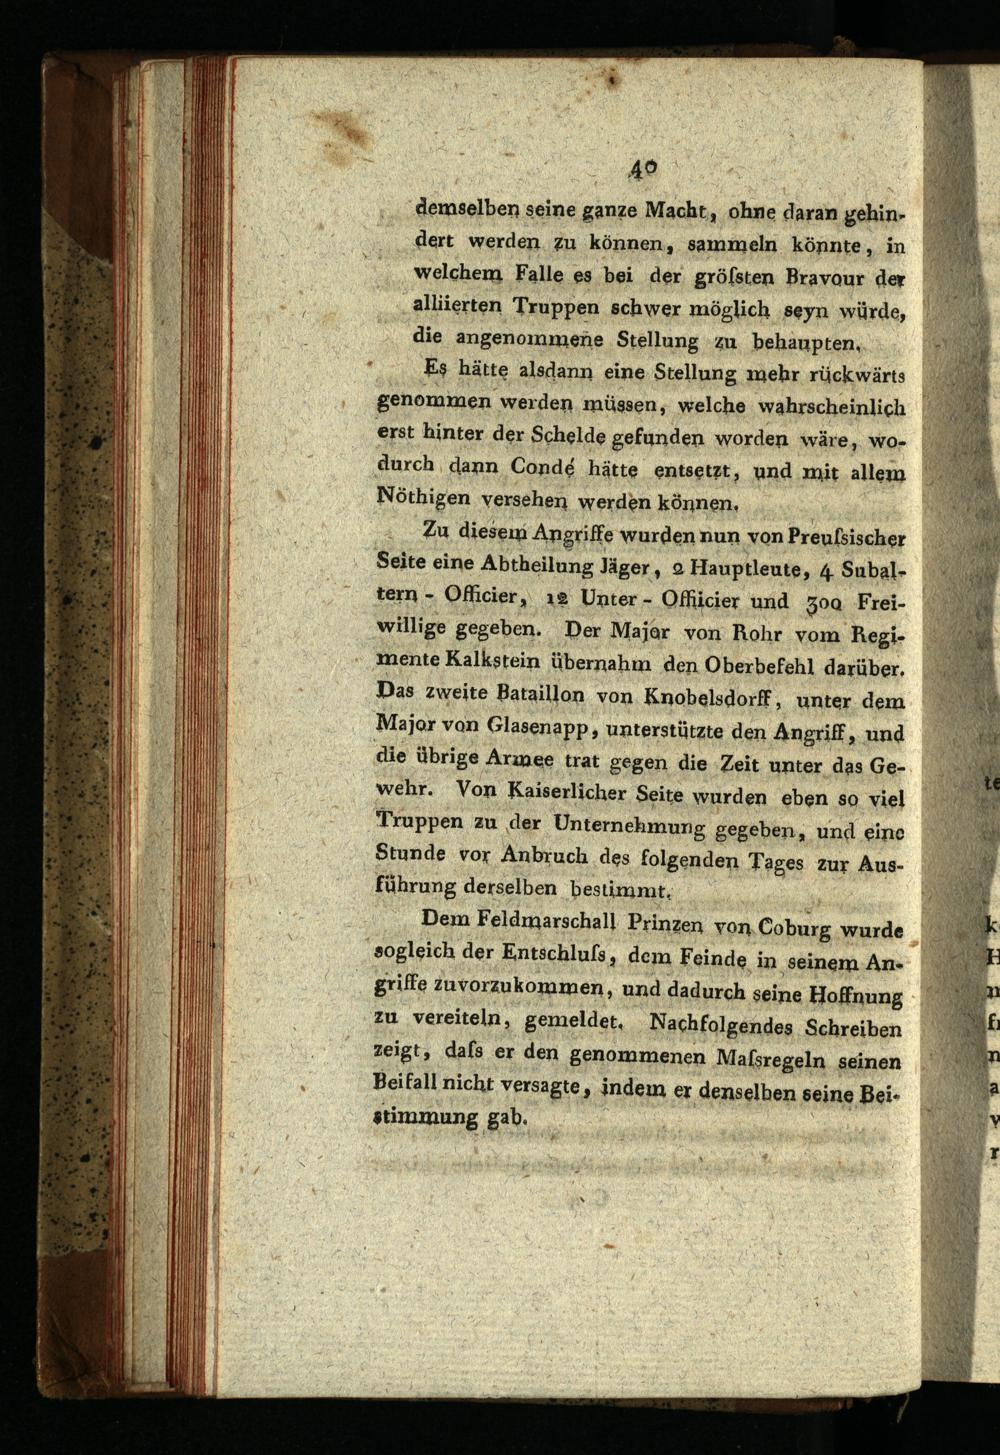 40
demselben seine ganze Macht, ohne daran gehin-
dert werden zu können, sammeln könnte, in
welchem Falle es bei der gröſsten Bravour der
alliierten Truppen schwer möglich seyn würde,
die angenommene Stellung zu behaupten.
Es hätte alsdann eine Stellung mehr rückwärts
genommen werden müssen, welche wahrscheinlich
erst hinter der Schelde gefunden worden wäre, wo-
durch dann Condé hätte entsetzt, und mit allem
Nöthigen versehen werden können.
Zu diesem Angriffe wurden nun von Preuſsischer
Seite eine Abtheilung Jäger, 2 Hauptleute, 4 Subal-
tern - Officier, 12 Unter - Offiicier und 300 Frei-
willige gegeben. Der Major von Rohr vom Regi-
mente Kalkstein übernahm den Oberbefehl darüber.
Das zweite Bataillon von Knobelsdorff, unter dem
Major von Glasenapp, unterstützte den Angriff, und
die übrige Armee trat gegen die Zeit unter das Ge-
wehr. Von Kaiserlicher Seite wurden eben so viel
Truppen zu der Unternehmung gegeben, und eine
Stunde vor Anbruch des folgenden Tages zur Aus-
führung derselben bestimmt.
Dem Feldmarschall Prinzen von Coburg wurde
sogleich der Entschluſs, dem Feinde in seinem An-
griffe zuvorzukommen, und dadurch seine Hoffnung
zu vereiteln, gemeldet. Nachfolgendes Schreiben
zeigt, daſs er den genommenen Maſsregeln seinen
Beifall nicht versagte, indem er denselben seine Bei-
stimmung gab.